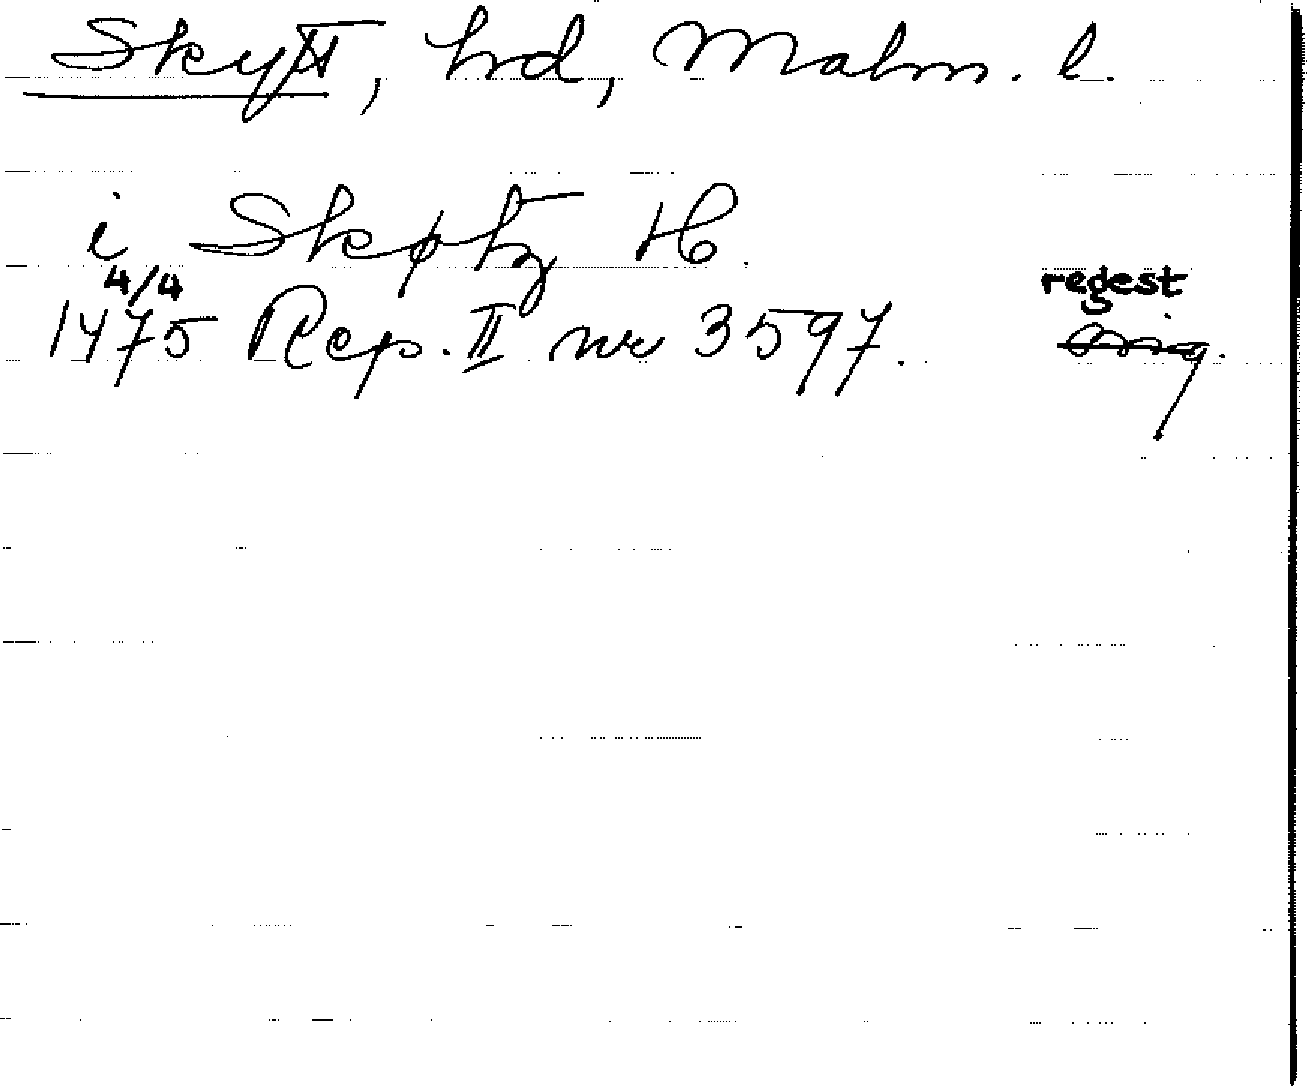 Skytt, hrd, Malm. l.
i Skøtz H.
4/4 regest
1475 Rep. II nr 3597. orig.